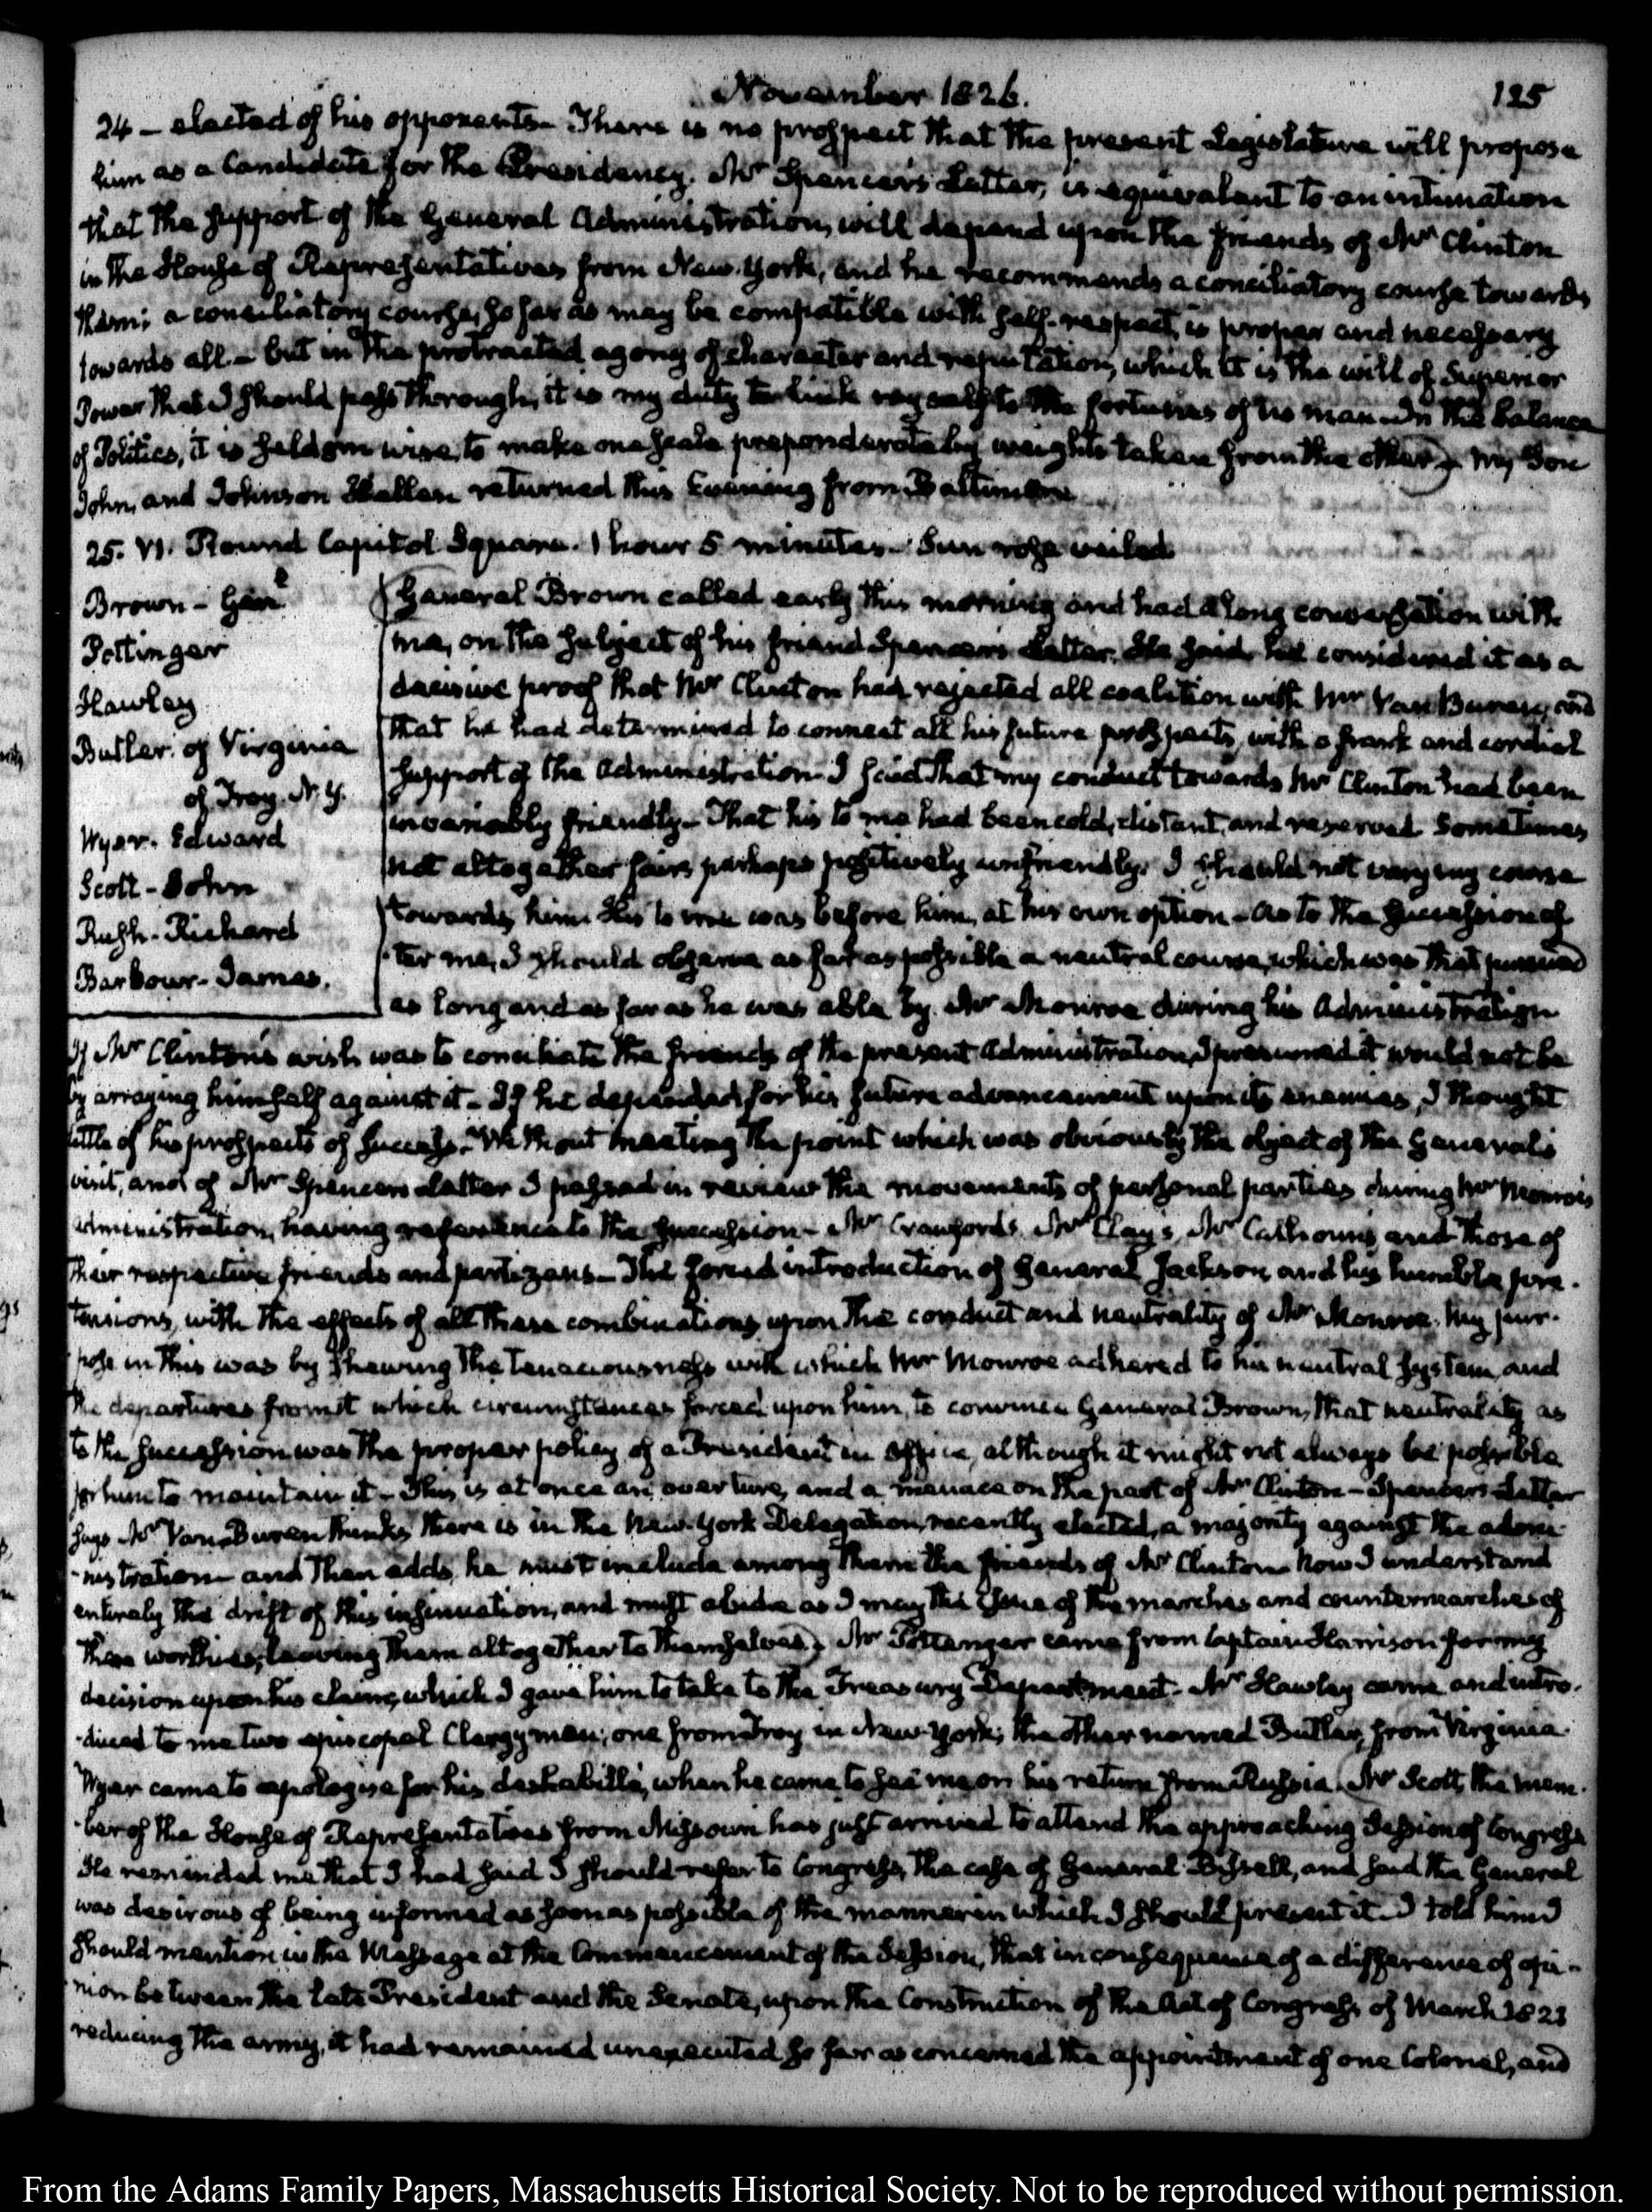 November 1826.
125
24 – elected of his opponents – There is no prospect that the present Legislature will propose
him as a Candidate for the Presidency. Mr Spencer's Letter, is equivalent to an intimation
that the support of the General Administration, will depend upon the friends of Mr Clinton
in the House of Representatives from New York, and he recommends a conciliatory course towards
them; a conciliatory course, so far as may be compatible with self-respect, is proper and necessary
towards all – but in the protracted agony of character and reputation, which it is the will of Superior
Power that I should pass through, it is my duty to link myself to the fortunes of no man – In the balance
of Politics, it is seldom wise, to make one scale preponderate by weights taken from the other) – My Son
John, and Johnson Hellen returned this Evening from Baltimore
25. VI. Round Capitol Square. 1 hour 5 minutes. Sun rose veiled
Brown – Genl
Pottinger
Hawley
Butler. of Virginia
of Troy. N.Y.
Wyer. Edward
Scott – John
Rush – Richard
Barbour – James.
(General Brown called early this morning and had a long conversation with
me, on the subject of his friend Spencer's Letter. He said he considered it as a
decisive proof that Mr Clinton had rejected all coalition with Mr Van Buren, and
that he had determined to connect all his future prospects, with a frank and cordial
support of the Administration – I said that my conduct towards Mr Clinton had been
invariably friendly – That his to me had been cold, distant, and reserved – Sometimes
not altogether fair, perhaps positively unfriendly. I should not vary my course
towards him. His to me was before him, at his own option – As to the Succession af
ter me, I should observe as far as possible a neutral course, which was that pursued
as long and as far as he was able by Mr Monroe during his Administration
If Mr Clinton's wish was to conciliate the friends of the present Administration, I presumed it would not be
by arraying himself against it – If he depended for his future advancement upon its enemies, I thought
little of his prospects of success. Without meeting the point which was obviously the object of the General's
visit, and of Mr Spencer's Letter I passed in review the movements of personal parties during Mr Monroe's
Administration, having reference to the Succession – Mr Crawford's, Mr Clay's, Mr Calhoun's, and those of
their respective friends and partizans – The forced introduction of General Jackson and his humble pre-
tensions, with the effects of all these combinations upon the conduct and neutrality of Mr Monroe. My pur-
pose in this was by shewing the tenaciousness with which Mr Monroe adhered to his neutral system, and
the departures from it which circumstances forced upon him, to convince General Brown, that neutrality as
to the Succession was the proper policy of a President in Office, although it might not always be possible
for him to maintain it – This is at once an overture, and a menace on the part of Mr Clinton – Spencer's Letter
says Mr Van Buren thinks there is in the New-York Delegation, recently elected, a majority against the admi-
nistration – and then adds, he must include among them the friends of Mr Clinton – Now I understand
entirely the drift of this insinuation, and must abide as I may the issue of the marches and countermarches of
these worthies; leaving them altogether to themselves). Mr Pottenger came from Captain Harrison for my
decision upon his claim, which I gave him to take to the Treasury Department. Mr Hawley came and intro-
duced to me two episcopal Clergymen; one from Troy in New-York; the other named Butler, from Virginia.
Wyer came to apologise for his deshabille, when he came to see me on his return from Russia. (Mr Scott, the mem-
ber of the House of Representatives from Missouri has just arrived to attend the approaching Session of Congress
He reminded me that I had said I should refer to Congress, the case of General Bissell, and said the General
was desirous of being informed as soon as possible of the manner in which I should present it – I told him I
should mention in the Message at the Commencement of the Session, that in consequence of a difference of opi-
nion between the late President and the Senate, upon the Construction of the Act of Congress of March 1821
reducing the army, it had remained unexecuted so far as concerned the appointment of one Colonel, and
From the Adams Family Papers, Massachusetts Historical Society. Not to be reproduced without permission.